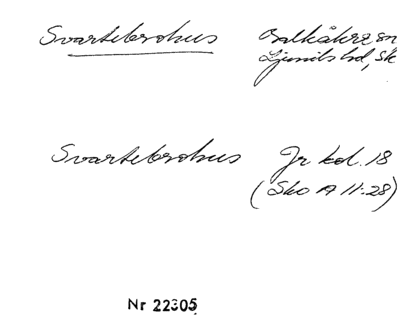 Svartebrohus Balkåkra sn
Ljunits hd, Sk
Svartebrohus Jr kol. 18
(Sko A 11:28)
Nr 22305